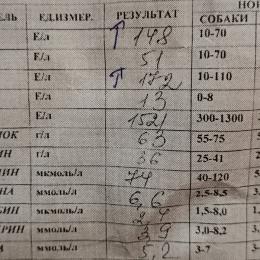 НОР
ЕЛЬ ЕД.ИЗМЕР. РЕЗУЛЬТАТ СОБАКИ
Е/л ↑ 148 10-70
Е/л 51 10-70
Е/л ↑ 172 10-110
Е/л 13 0-8
Е/л 1521 300-1300
ЛОК г/л 63 55-75
ИН г/л 36 25-41
мкмоль/л 74 40-120
НА ммоль/л 6,6 2,5-8,5
БИН мкмоль/л 2,4 1,5-8,0
ЕРИН ммоль/л 3,9 3,0-8,2
ммоль/л 5,2 3-7